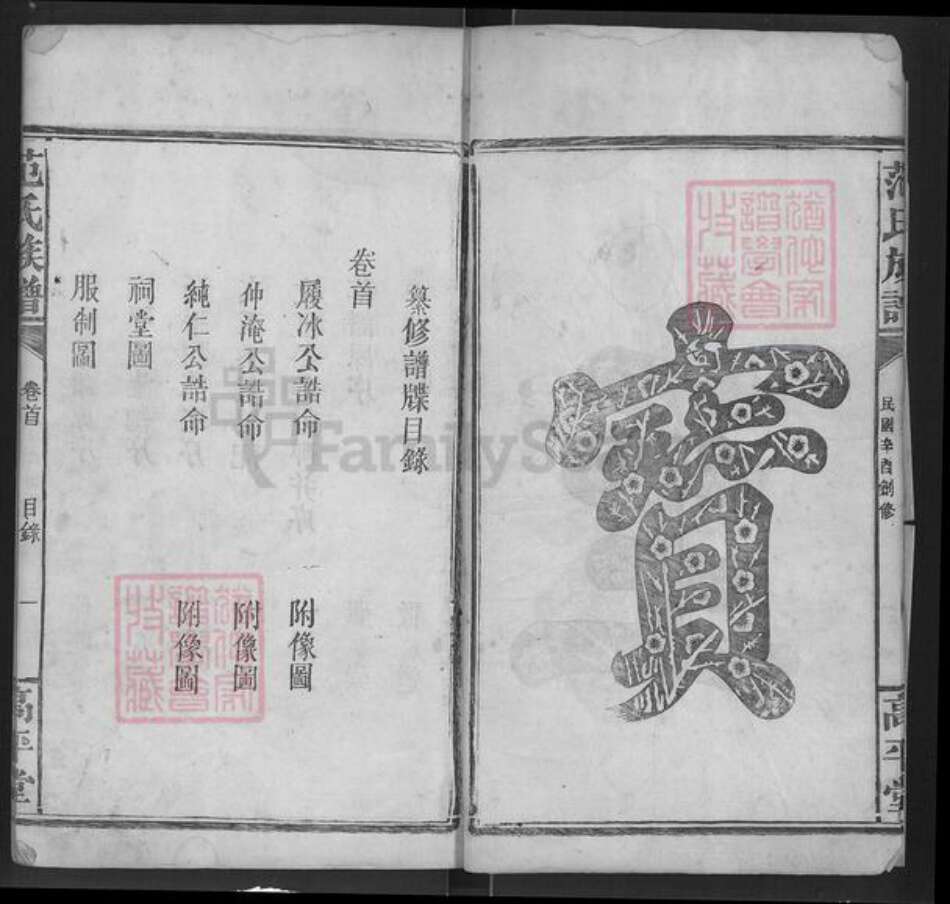 范氏族譜
民國辛酉創修
高平堂
寳
纂修譜牒目錄
卷首
履冰公誥命 附像圖
仲淹公誥命 附像圖
純仁公誥命 附像圖
祠堂圖
服制圖
范氏族譜
卷首
目錄
一
高平堂
FamilySearch